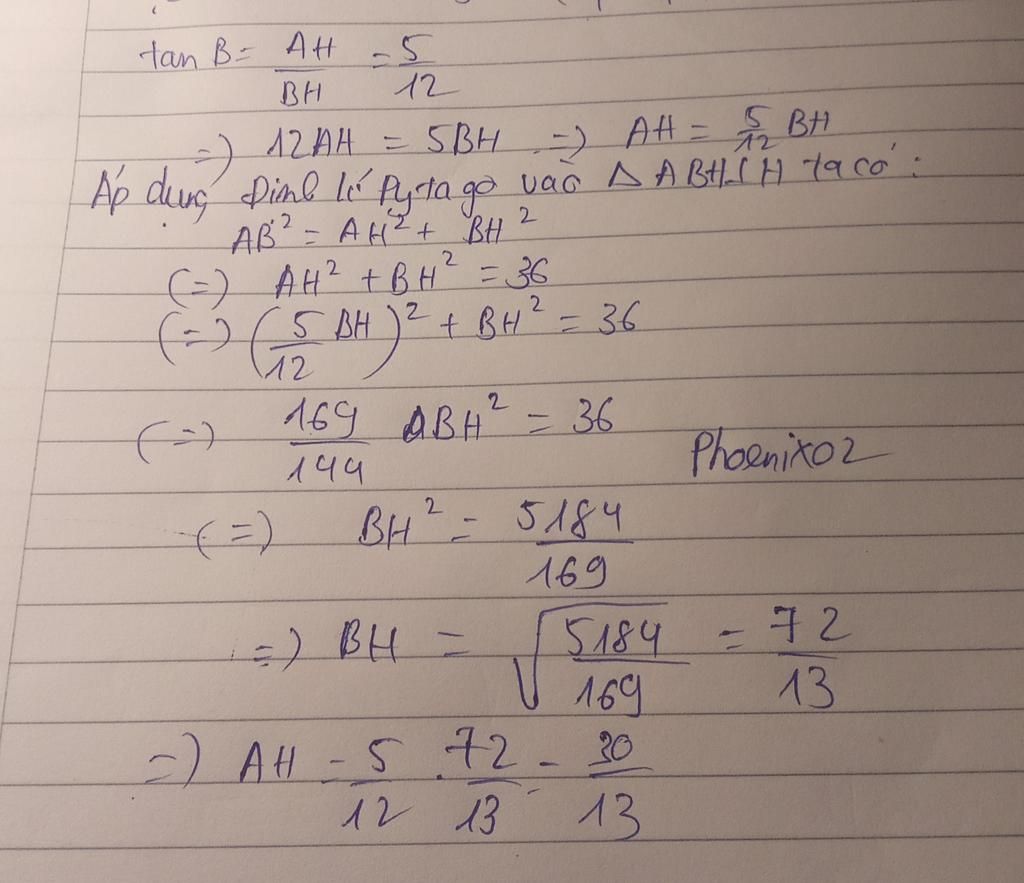 tan B = AH/BH = 5/12
=) 12AH = 5BH =) AH = 5/12 BH
Áp dụng Định lí Pytago vào Δ ABH ⊥ H ta có:
AB² = AH² + BH²
(=) AH² + BH² = 36
(=) (5/12 BH)² + BH² = 36
(=) 169/144 BH² = 36
Phoenix02
(=) BH² = 5184/169
=) BH = √(5184/169) = 72/13
=) AH = 5/12 . 72/13 = 30/13